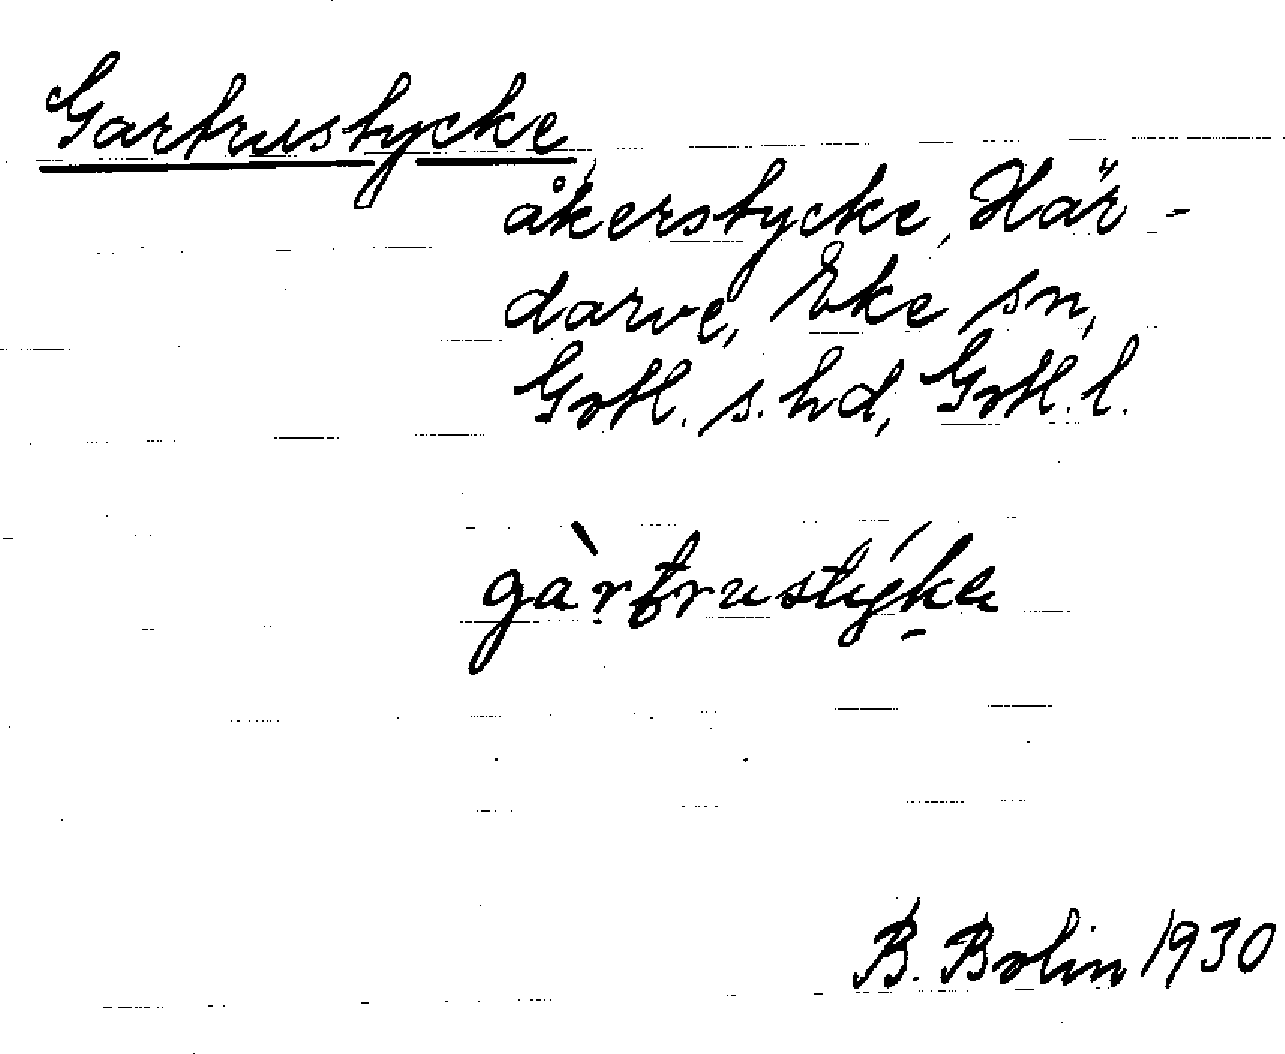 Gartrustycke,
åkerstycke, Här-
darve, Eke sn,
Gotl. s. hd, Gotl. l.
gàrtrustýke
B. Bolin 1930